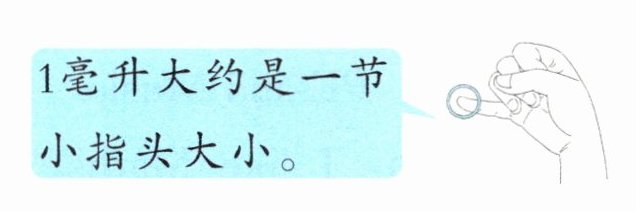 1毫升大约是一节
小指头大小。